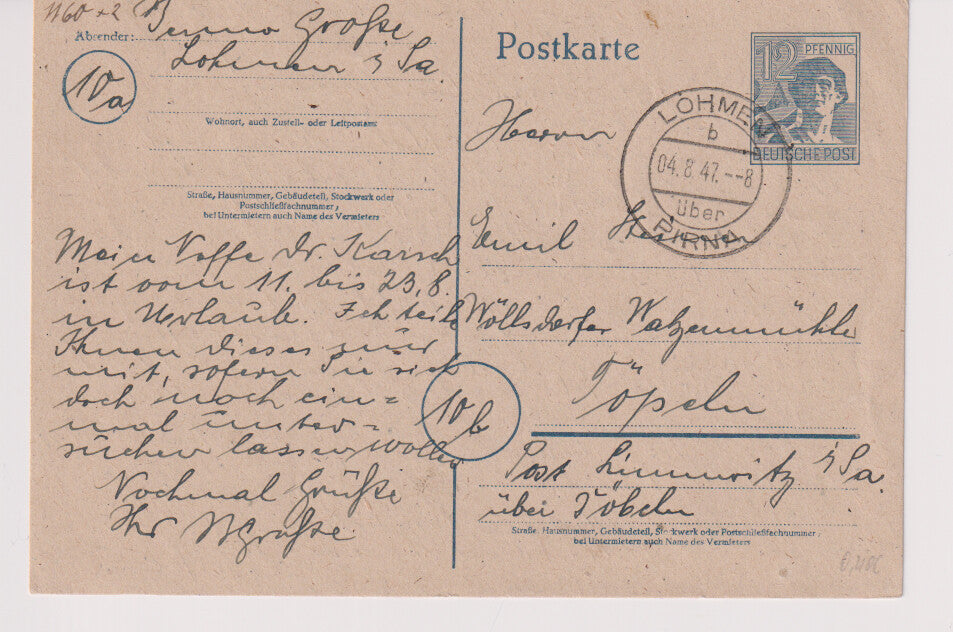 Benno Große
Absender:
Lohmen i/Sa.
10a
Wohnort, auch Zustell- oder Leitpostamt
Straße, Hausnummer, Gebäudeteil, Stockwerk oder
Postschließfachnummer;
bei Untermietern auch Name des Vermieters
Mein Neffe Dr. Karsch
ist vom 11. bis 23.8.
in Urlaub. Ich teile
Ihnen dieses nur
mit, sofern Sie sich
doch noch ein=
mal unter=
suchen lassen wollen
Nochmal Grüße
Ihr BGroße
Postkarte
12 PFENNIG
DEUTSCHE POST
LOHMEN
b
04.8.47.--8
über
PIRNA
Herrn
Emil
Wöllsdorfer Walzenmühle
Töpeln
10b
Post Limmritz i/Sa.
über Döbeln
Straße, Hausnummer, Gebäudeteil, Stockwerk oder Postschließfachnummer;
bei Untermietern auch Name des Vermieters